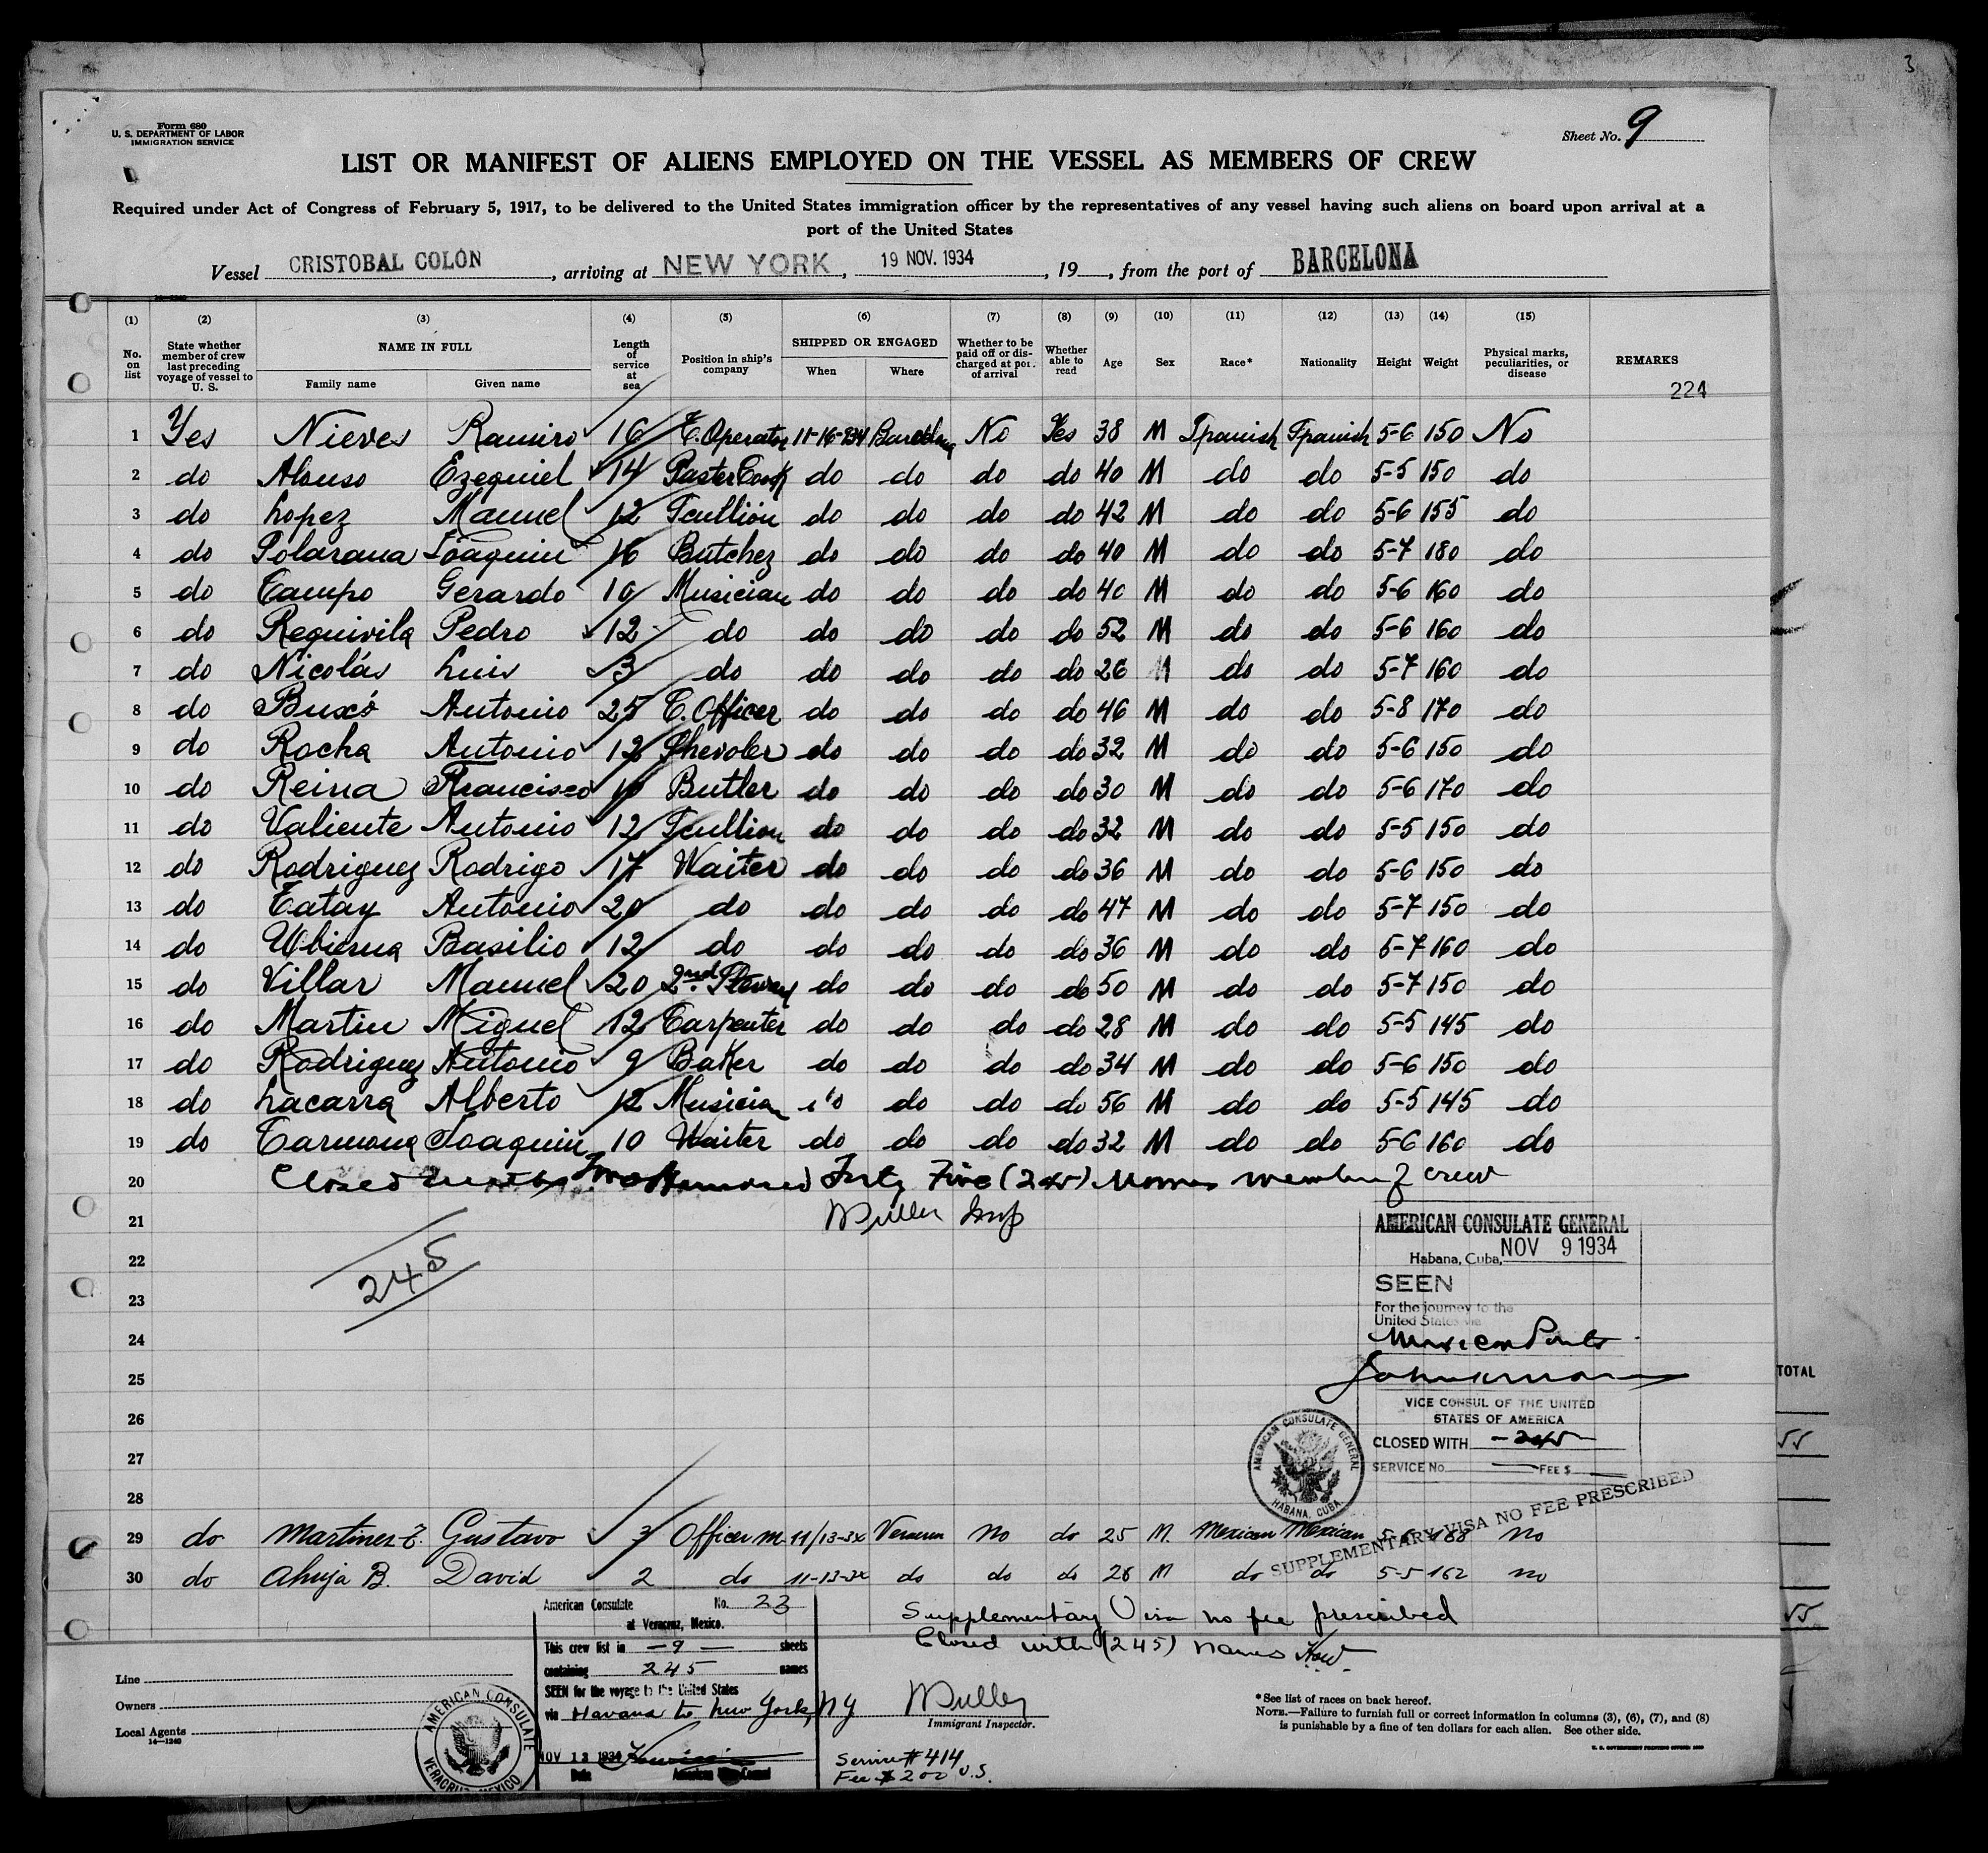 3
Form 680
U. S. DEPARTMENT OF LABOR
IMMIGRATION SERVICE
Sheet No. 9
LIST OR MANIFEST OF ALIENS EMPLOYED ON THE VESSEL AS MEMBERS OF CREW
Required under Act of Congress of February 5, 1917, to be delivered to the United States immigration officer by the representatives of any vessel having such aliens on board upon arrival at a
port of the United States
Vessel CRISTOBAL COLON, arriving at NEW YORK, 19 NOV. 1934, 19, from the port of BARCELONA
(1) (2) (3) (4) (5) (6) (7) (8) (9) (10) (11) (12) (13) (14) (15)
No. on list
State whether member of crew last preceding voyage of vessel to U. S.
NAME IN FULL
Family name Given name
Length of service at sea
Position in ship's company
SHIPPED OR ENGAGED
When Where
Whether to be paid off or discharged at port of arrival
Whether able to read
Age Sex Race* Nationality Height Weight
Physical marks, peculiarities, or disease
REMARKS
224
1 Yes Nieves Ramiro 16 Barcelona No Yes 38 M Spanish Spanish 5-6 150 No
2 do Alonso Ezequiel 14 Paster Cook do do do do 40 M do do 5-5 150 do
3 do Lopez Manuel 12 Scullion do do do do 42 M do do 5-6 155 do
4 do Solarana Joaquin 16 Butcher do do do do 40 M do do 5-7 180 do
5 do Campo Gerardo 10 Musician do do do do 40 M do do 5-6 160 do
6 do Requivila Pedro 12 do do do do do 52 M do do 5-6 160 do
7 do Nicolás Luis 3 do do do do do 26 M do do 5-7 160 do
8 do Buxó Antonio 25 C. Officer do do do do 46 M do do 5-8 170 do
9 do Rocha Antonio 12 do do do do 32 M do do 5-6 150 do
10 do Reina Francisco 10 Butler do do do do 30 M do do 5-6 170 do
11 do Valiente Antonio 12 Scullion do do do do 32 M do do 5-5 150 do
12 do Rodriguez Rodrigo 17 Waiter do do do do 36 M do do 5-6 150 do
13 do Tatay Antonio 20 do do do do do 47 M do do 5-7 150 do
14 do Ubierna Basilio 12 do do do do do 36 M do do 5-7 160 do
15 do Villar Manuel 20 2nd Steward do do do do 50 M do do 5-7 150 do
16 do Martin Miguel 12 Carpenter do do do do 28 M do do 5-5 145 do
17 do Rodriguez Antonio 9 Baker do do do do 34 M do do 5-6 150 do
18 do Lacarra Alberto 12 Musician do do do do 56 M do do 5-5 145 do
19 do Carmona Joaquin 10 Waiter do do do do 32 M do do 5-6 160 do
20 Closed Two Hundred Forty Five (245) members of crew
21
22
23
24
25
26
27
28
245
AMERICAN CONSULATE GENERAL
Habana, Cuba, NOV 9 1934
SEEN
For the journey to the
United States via
Mexican Ports
VICE CONSUL OF THE UNITED
STATES OF AMERICA
CLOSED WITH -245-
SERVICE No. FEE $
AMERICAN CONSULATE GENERAL
HABANA, CUBA
SUPPLEMENTARY VISA NO FEE PRESCRIBED
TOTAL
29 do Martinez Gustavo 3 Officer M. 11/13-34 No do 25 M. Mexican Mexican 168 no
30 do Ahuja B. David 2 do 11-13-34 do do do 26 M do do 5-5 162 no
American Consulate No. 23
at Veracruz, Mexico.
This crew list in -9- sheets
containing 245 names
SEEN for the voyage to the United States
via Havana to New York, NY
NOV 13 1934
Date
AMERICAN CONSULATE
VERACRUZ, MEXICO
Supplementary Visa no fee prescribed
Closed with (245) names
Immigrant Inspector.
Service # 414
Fee $ 2 00 U.S.
Line
Owners
Local Agents
14—1240
*See list of races on back hereof.
NOTE.—Failure to furnish full or correct information in columns (3), (6), (7), and (8)
is punishable by a fine of ten dollars for each alien. See other side.